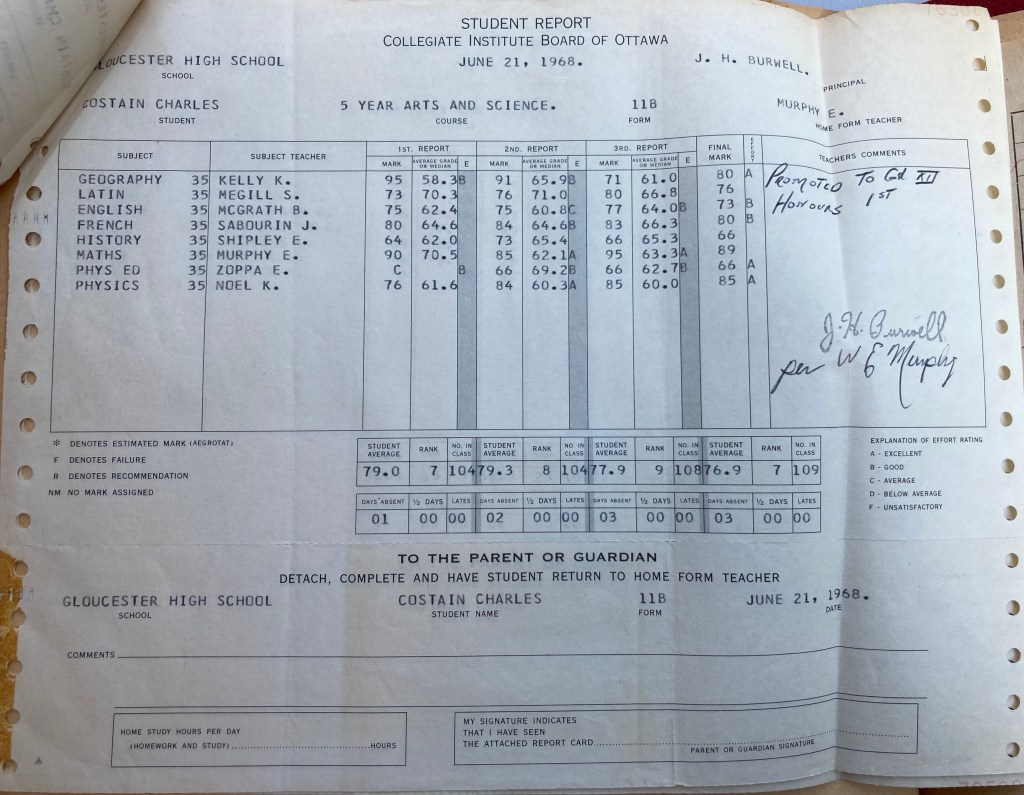 STUDENT REPORT
COLLEGIATE INSTITUTE BOARD OF OTTAWA
LOUCESTER HIGH SCHOOL JUNE 21, 1968. J. H. BURWELL.
SCHOOL PRINCIPAL
COSTAIN CHARLES 5 YEAR ARTS AND SCIENCE. 11B MURPHY E.
STUDENT COURSE FORM HOME FORM TEACHER
SUBJECT SUBJECT TEACHER 1ST. REPORT 2ND. REPORT 3RD. REPORT FINAL MARK EFFORT TEACHERS COMMENTS
MARK AVERAGE GRADE OR MEDIAN E MARK AVERAGE GRADE OR MEDIAN E MARK AVERAGE GRADE OR MEDIAN E
GEOGRAPHY 35 KELLY K. 95 58.3 B 91 65.9 B 71 61.0 80 A Promoted To Gd XII
LATIN 35 MEGILL S. 73 70.3 76 71.0 80 66.8 76
ENGLISH 35 MCGRATH B. 75 62.4 75 60.8 C 77 64.0 B 73 B Honours 1st
FRENCH 35 SABOURIN J. 80 64.6 84 64.6 B 83 66.3 80 B
HISTORY 35 SHIPLEY E. 64 62.0 73 65.4 66 65.3 66
MATHS 35 MURPHY E. 90 70.5 85 62.1 A 95 63.3 A 89
PHYS ED 35 ZOPPA E. C B 66 69.2 B 66 62.7 B 66 A
PHYSICS 35 NOEL K. 76 61.6 84 60.3 A 85 60.0 85 A
J. H. Burwell
per W E Murphy
* DENOTES ESTIMATED MARK (AEGROTAT)
F DENOTES FAILURE
R DENOTES RECOMMENDATION
NM NO MARK ASSIGNED
STUDENT AVERAGE RANK NO. IN CLASS STUDENT AVERAGE RANK NO. IN CLASS STUDENT AVERAGE RANK NO. IN CLASS STUDENT AVERAGE RANK NO. IN CLASS
79.0 7 104 79.3 8 104 77.9 9 108 76.9 7 109
DAYS ABSENT ½ DAYS LATES DAYS ABSENT ½ DAYS LATES DAYS ABSENT ½ DAYS LATES DAYS ABSENT ½ DAYS LATES
01 00 00 02 00 00 03 00 00 03 00 00
EXPLANATION OF EFFORT RATING
A - EXCELLENT
B - GOOD
C - AVERAGE
D - BELOW AVERAGE
F - UNSATISFACTORY
TO THE PARENT OR GUARDIAN
DETACH, COMPLETE AND HAVE STUDENT RETURN TO HOME FORM TEACHER
GLOUCESTER HIGH SCHOOL COSTAIN CHARLES 11B JUNE 21, 1968.
SCHOOL STUDENT NAME FORM DATE
COMMENTS
HOME STUDY HOURS PER DAY
(HOMEWORK AND STUDY) HOURS
MY SIGNATURE INDICATES
THAT I HAVE SEEN
THE ATTACHED REPORT CARD
PARENT OR GUARDIAN SIGNATURE